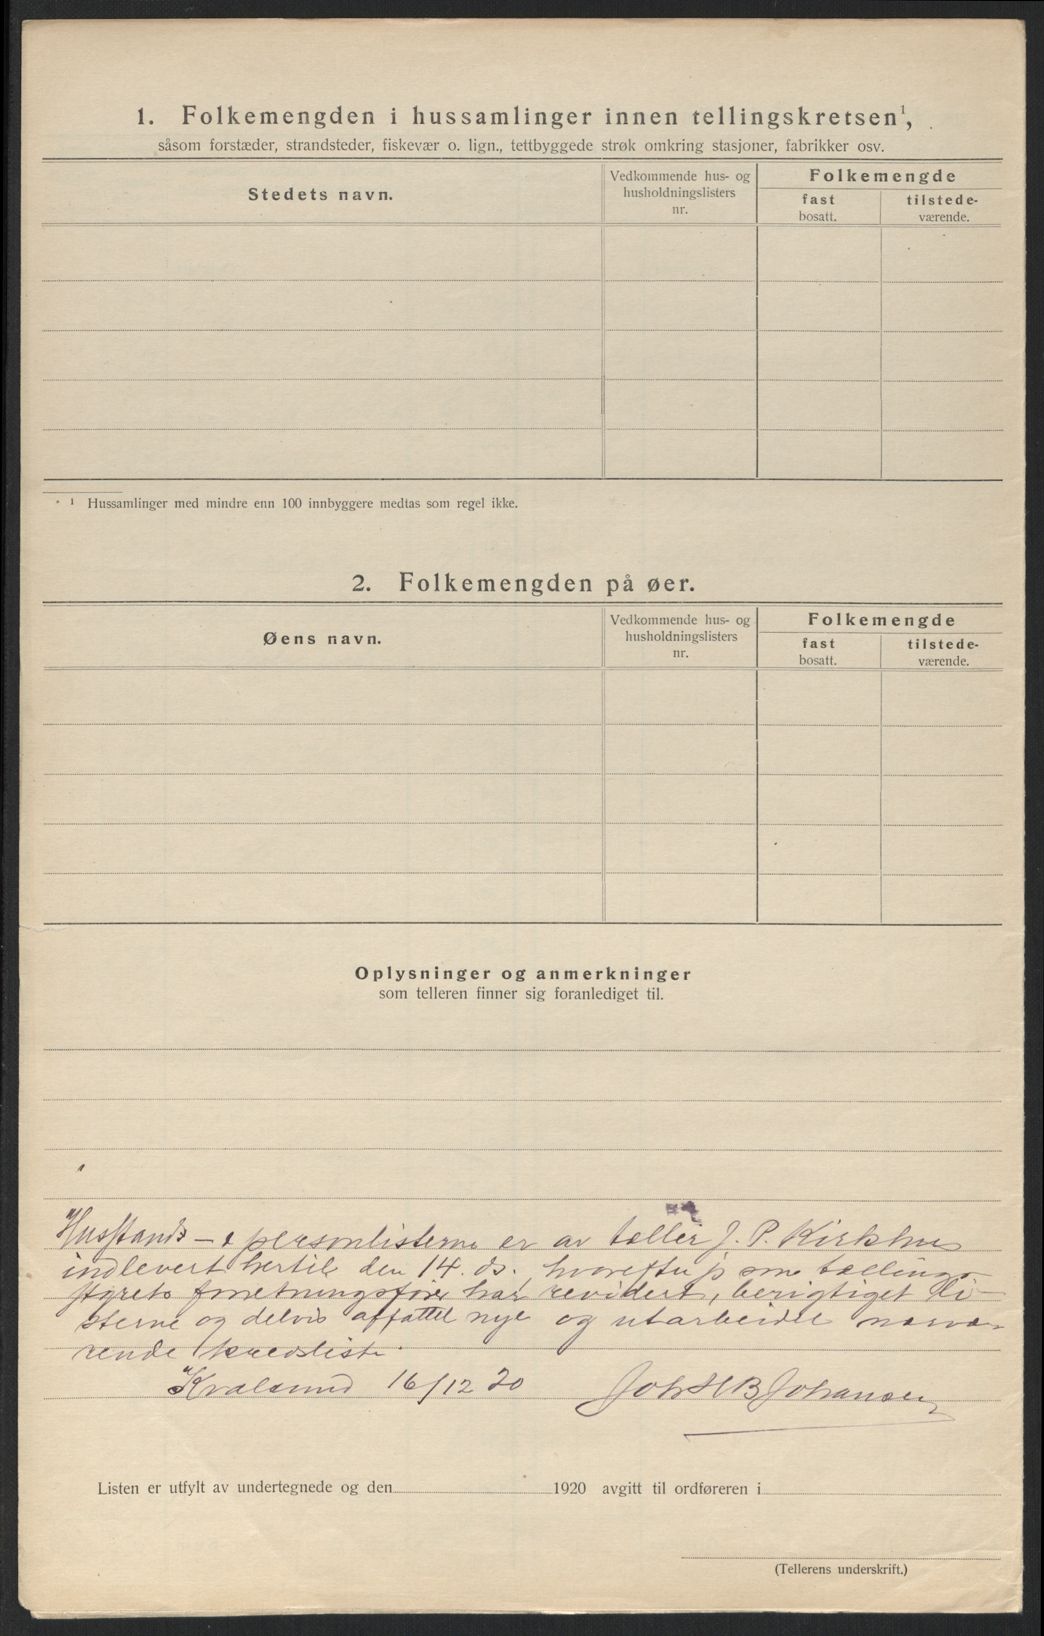 1. Folkemengden i hussamlinger innen tellingskretsen¹,
såsom forstæder, strandsteder, fiskevær o. lign., tettbyggede strøk omkring stasjoner, fabrikker osv.
Stedets navn.
Vedkommende hus- og
husholdningslisters
nr.
Folkemengde
fast
bosatt.
tilstede-
værende.
¹ Hussamlinger med mindre enn 100 innbyggere medtas som regel ikke.
2. Folkemengden på øer.
Øens navn.
Vedkommende hus- og
husholdningslisters
nr.
Folkemengde
fast
bosatt.
tilstede-
værende.
Oplysninger og anmerkninger
som telleren finner sig foranlediget til.
Husstands- & personlisterne er av teller J. P. Kirkhus
indlevert hertil den 14. ds. hvorefter jeg som tællings-
styrets forretningsfører har revidert, berigtiget li-
sterne og delvis affattet nye og utarbeidet nærvæ-
rende kredsliste.
Kvalsund 16/12 20 Joh H B Johansen
Listen er utfylt av undertegnede og den 1920 avgitt til ordføreren i
(Tellerens underskrift.)